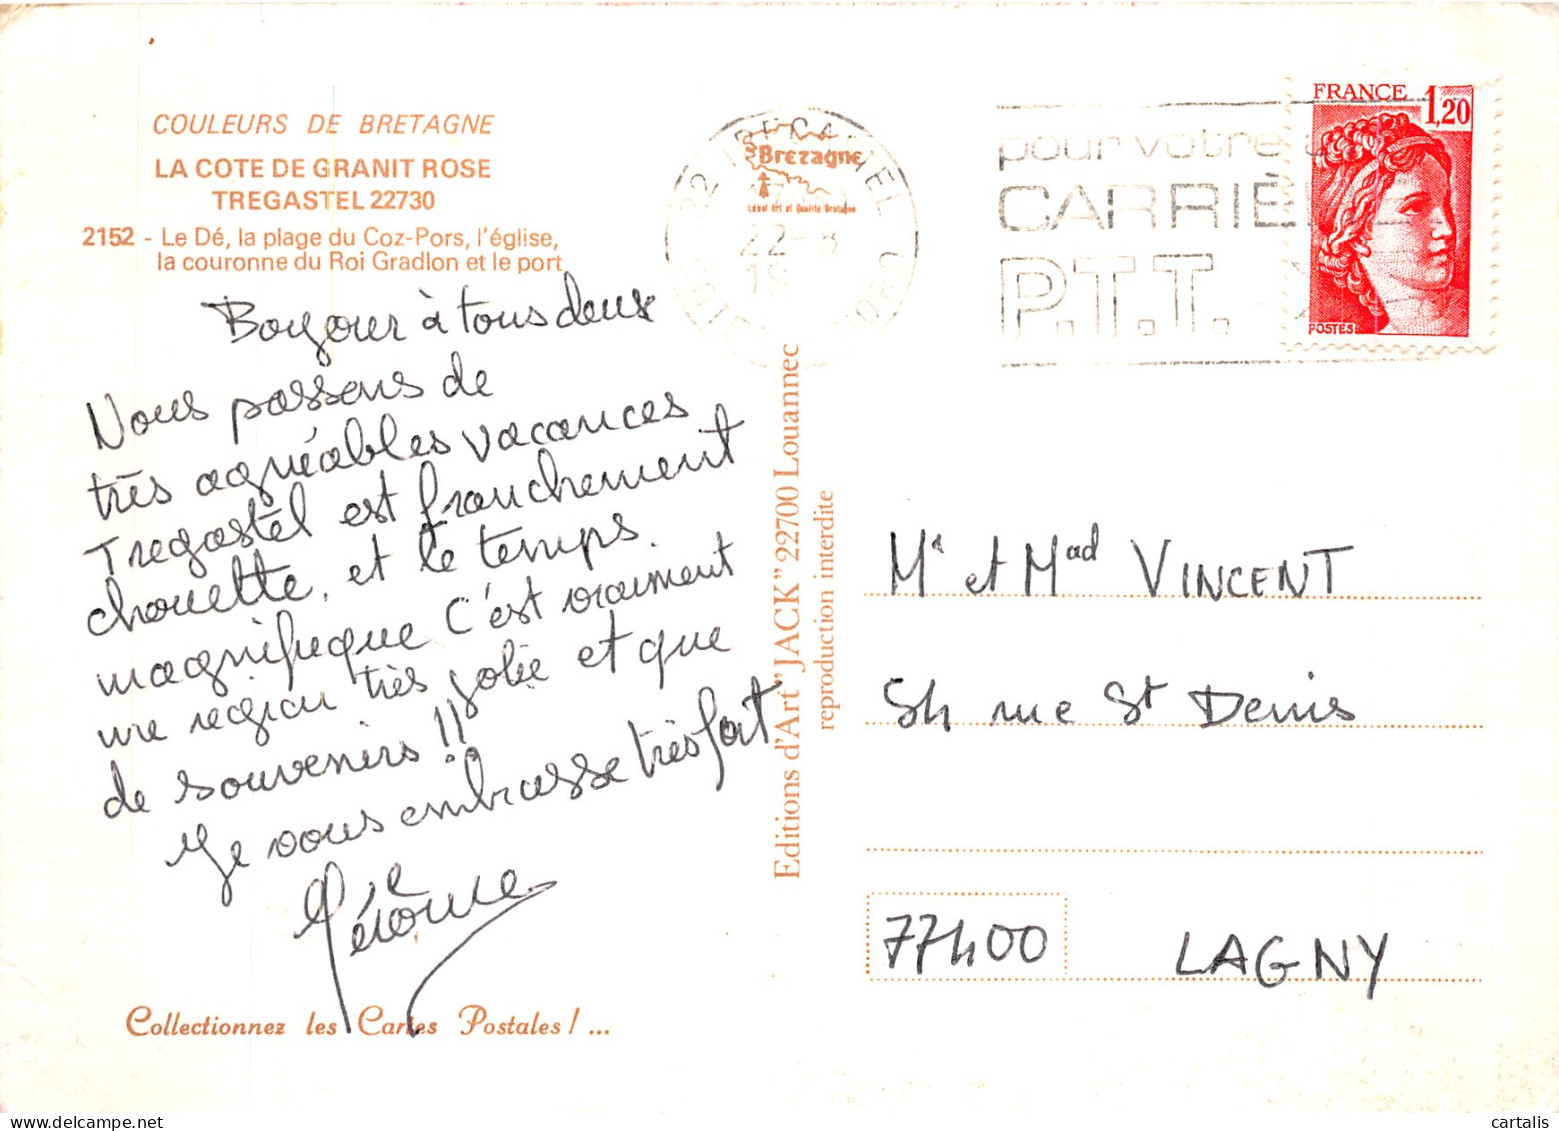 COULEURS DE BRETAGNE
LA COTE DE GRANIT ROSE
TREGASTEL 22730
2152 - Le Dé, la plage du Coz-Pors, l'église,
la couronne du Roi Gradlon et le port
Bonjour à tous deux
Nous passons de
très agréables vacances
Tregastel est franchement
chouette, et le temps.
magnifique C'est vraiment
une région très jolie et que
de souvenirs !!
Je vous embrasse très fort
Jérôme
Collectionnez les Cartes Postales ! ...
Editions d'Art "JACK" 22700 Louannec
reproduction interdite
Bretagne
Label Art et Qualité Bretagne
22-8
19
pour votre
CARRIÈ
P.T.T.
FRANCE 1,20
POSTES
Mr et Mad VINCENT
54 rue St Denis
77400 LAGNY
cartalis